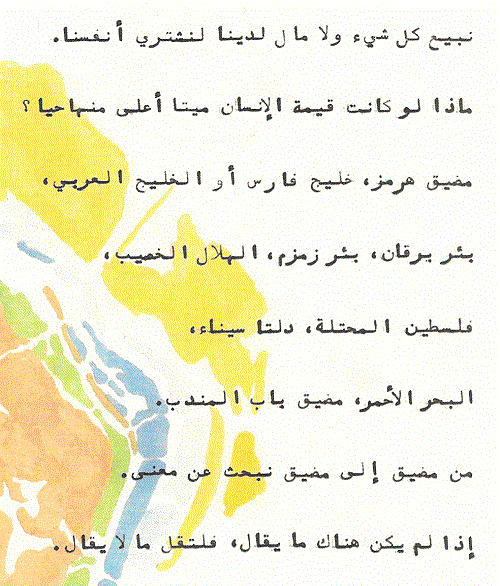 نبيع كل شيء ولا مال لدينا لنشتري أنفسنا.
ماذا لو كانت قيمة الإنسان ميتا أعلى منهاحيا؟
مضيق هرمز، خليج فارس أو الخليج العربي،
بئر برقان، بئر زمزم، الهلال الخصيب،
فلسطين المحتلة، دلتا سيناء،
البحر الأحمر، مضيق باب المندب.
من مضيق إلى مضيق نبحث عن معنى.
إذا لم يكن هناك ما يقال، فلتقل ما لا يقال.